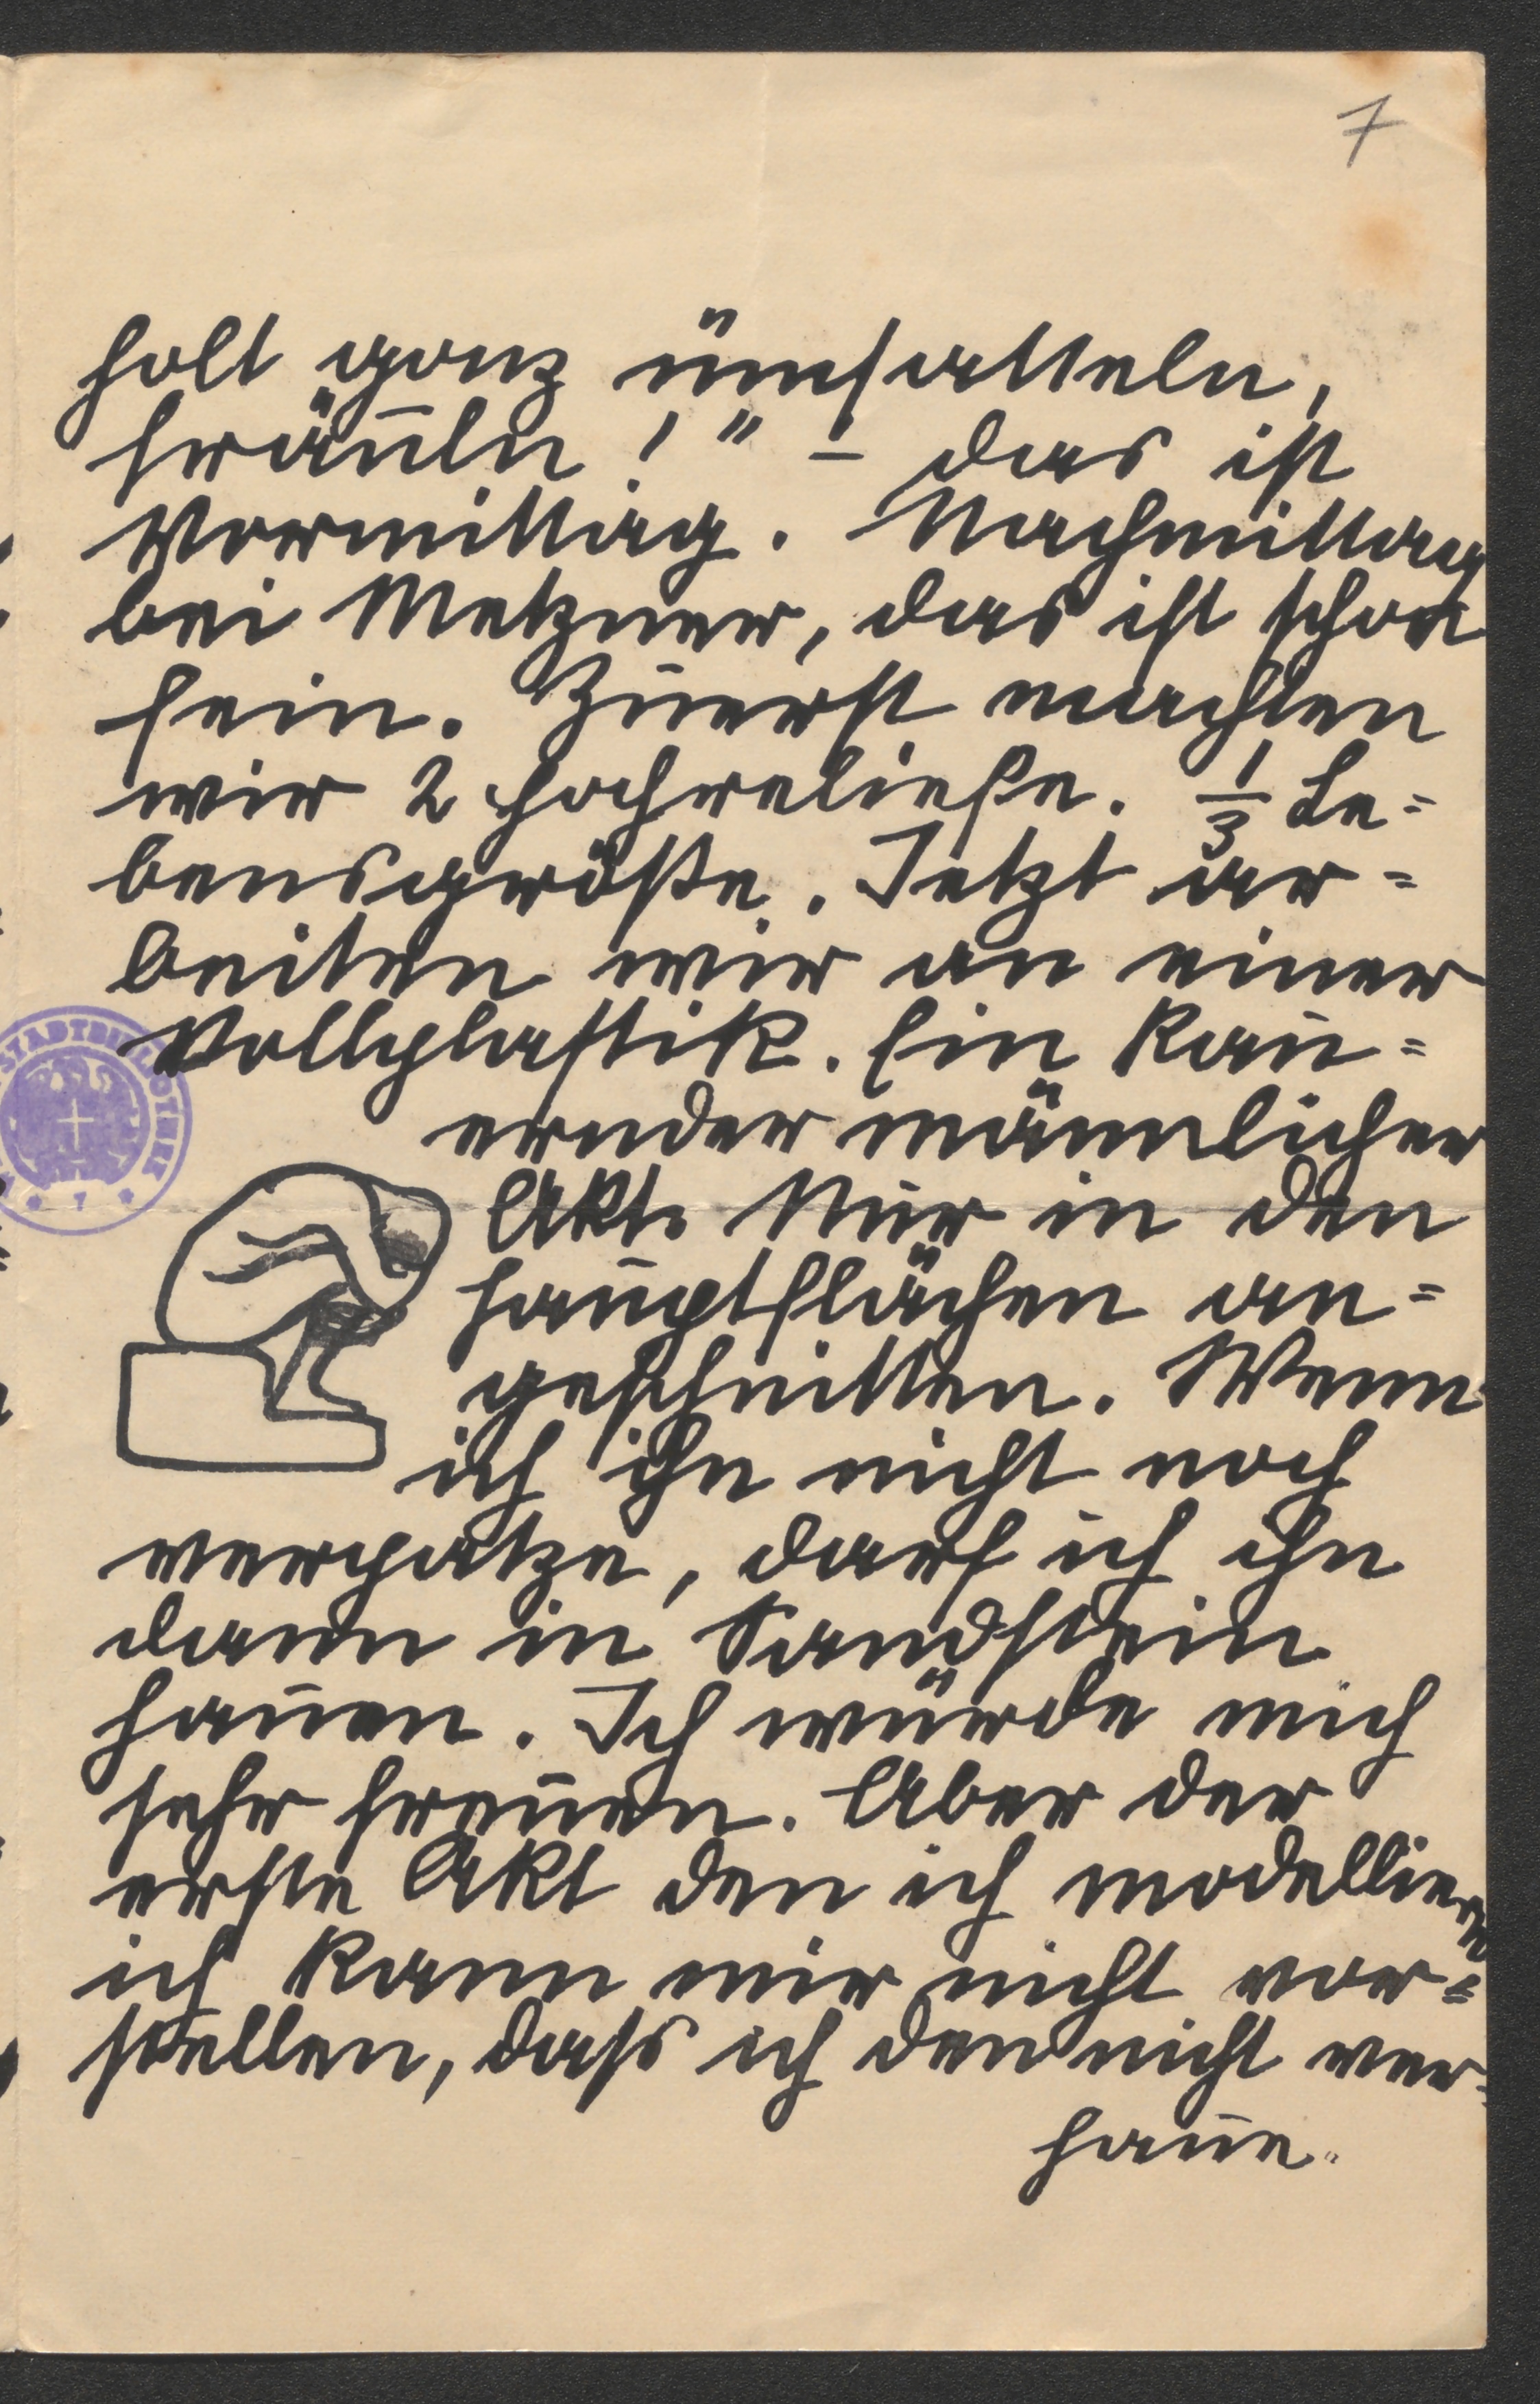 7
halt ganz umsatteln,
Fräuln!" – das ist
Vormittag. Nachmittag
bei Metzner, das ist schon
fein. Zuerst machten
wir 2 Hochreliefße. 1/3 Le=
bensgröße. Jetzt ar=
beiten wir an einer
Vollplastik. Ein kau=
ernder männlicher
Akt. Nur in den
Hauptflächen an=
geschnitten. Wenn
ich ihn nicht noch
verpatze, darf ich ihn
dann in Sandstein
hauen. Ich würde mich
sehr freuen. Aber der
erste Akt den ich modelliere
ich kann mir nicht vor=
stellen, dass ich den nicht ver=
haue.